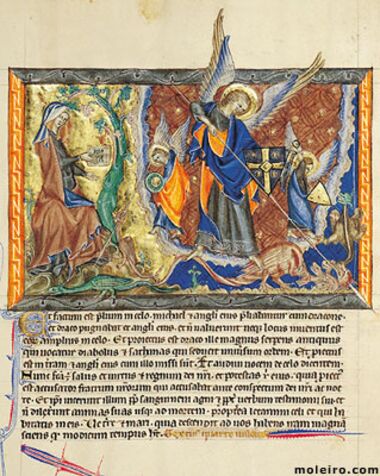 Et factum est plium in celo. michael et angli eius pliabantur cum dracone
et draco pugnabat et angli eius. et n̄ ualuerunt neqꝫ locus inuentus est
eor amplius in celo. Et proiectus est draco ille magnus serpens antiquus
qui uocatur diabolus et sathanas qui seducit orbem. Et
est in tram et angli eius cum illo missi st. Et audiui uocem in celo dicentem
Nunc salus et uirtus et regnum dei nri. et potestas eius. quia
est accusator fratrum nrorum qui accusabat ante conspectum dei nri ac noc
te. Et ipsi uicerunt illum pp sanguinem agni et ppt uerbum testimonii sui. et
n̄ dilexerunt animas suas usqꝫ ad mortem. propterea letamini celi et qui ha
bitatis in eis. Ue terre et mari. quia descendit ad uos habens iram magnā
sciens qd modicum tempus het.
moleiro.com